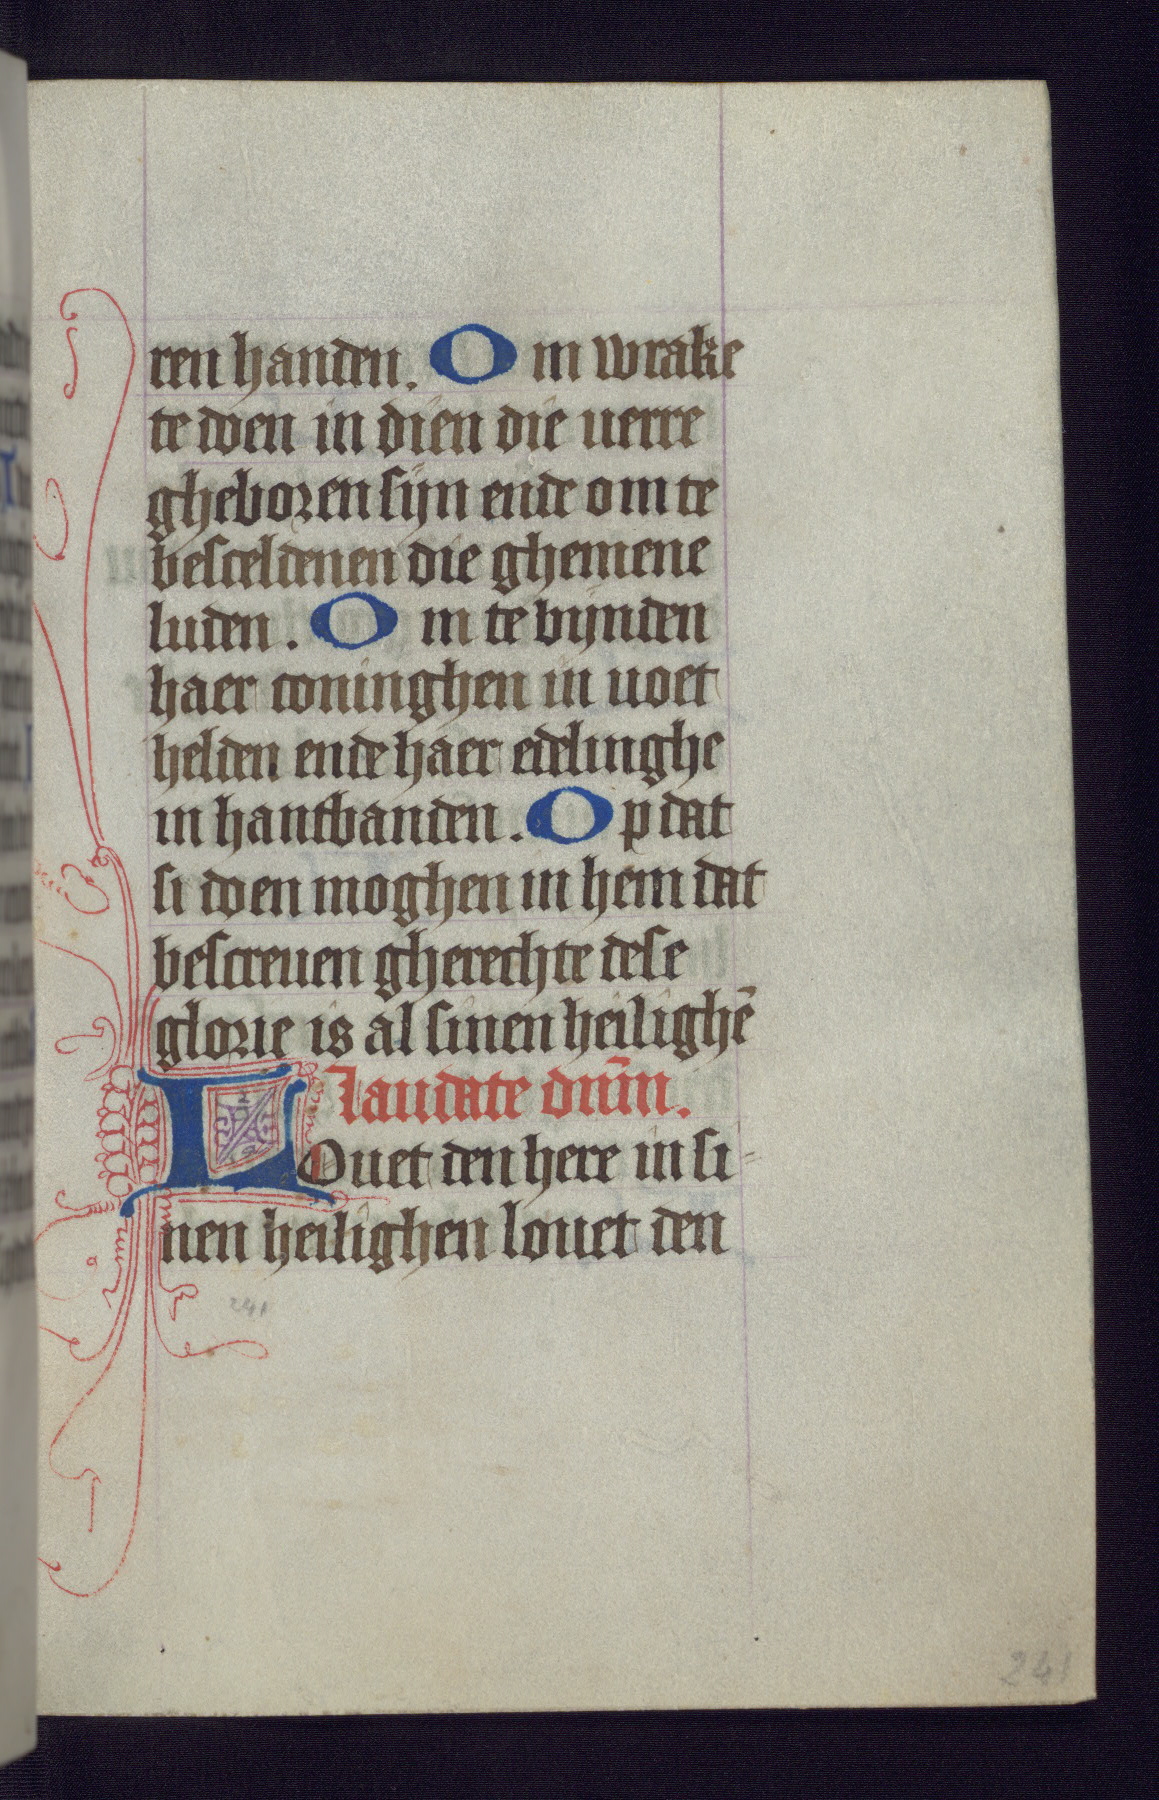 ren handen. Om wrake
te doen in dien die uerre
gheboren sijn ende om te
besceldenen die ghemene
luden. Om te bijnden
haer coninghen in uoet
helden ende haer edelinghe
in hantbanden. Op dat
si doen moghen in hem dat
bescreuen gherechte dese
glorie is al sinen heilighē
laudate dn̄m.
Louet den here in si-
nen heilighen louet den
241
241